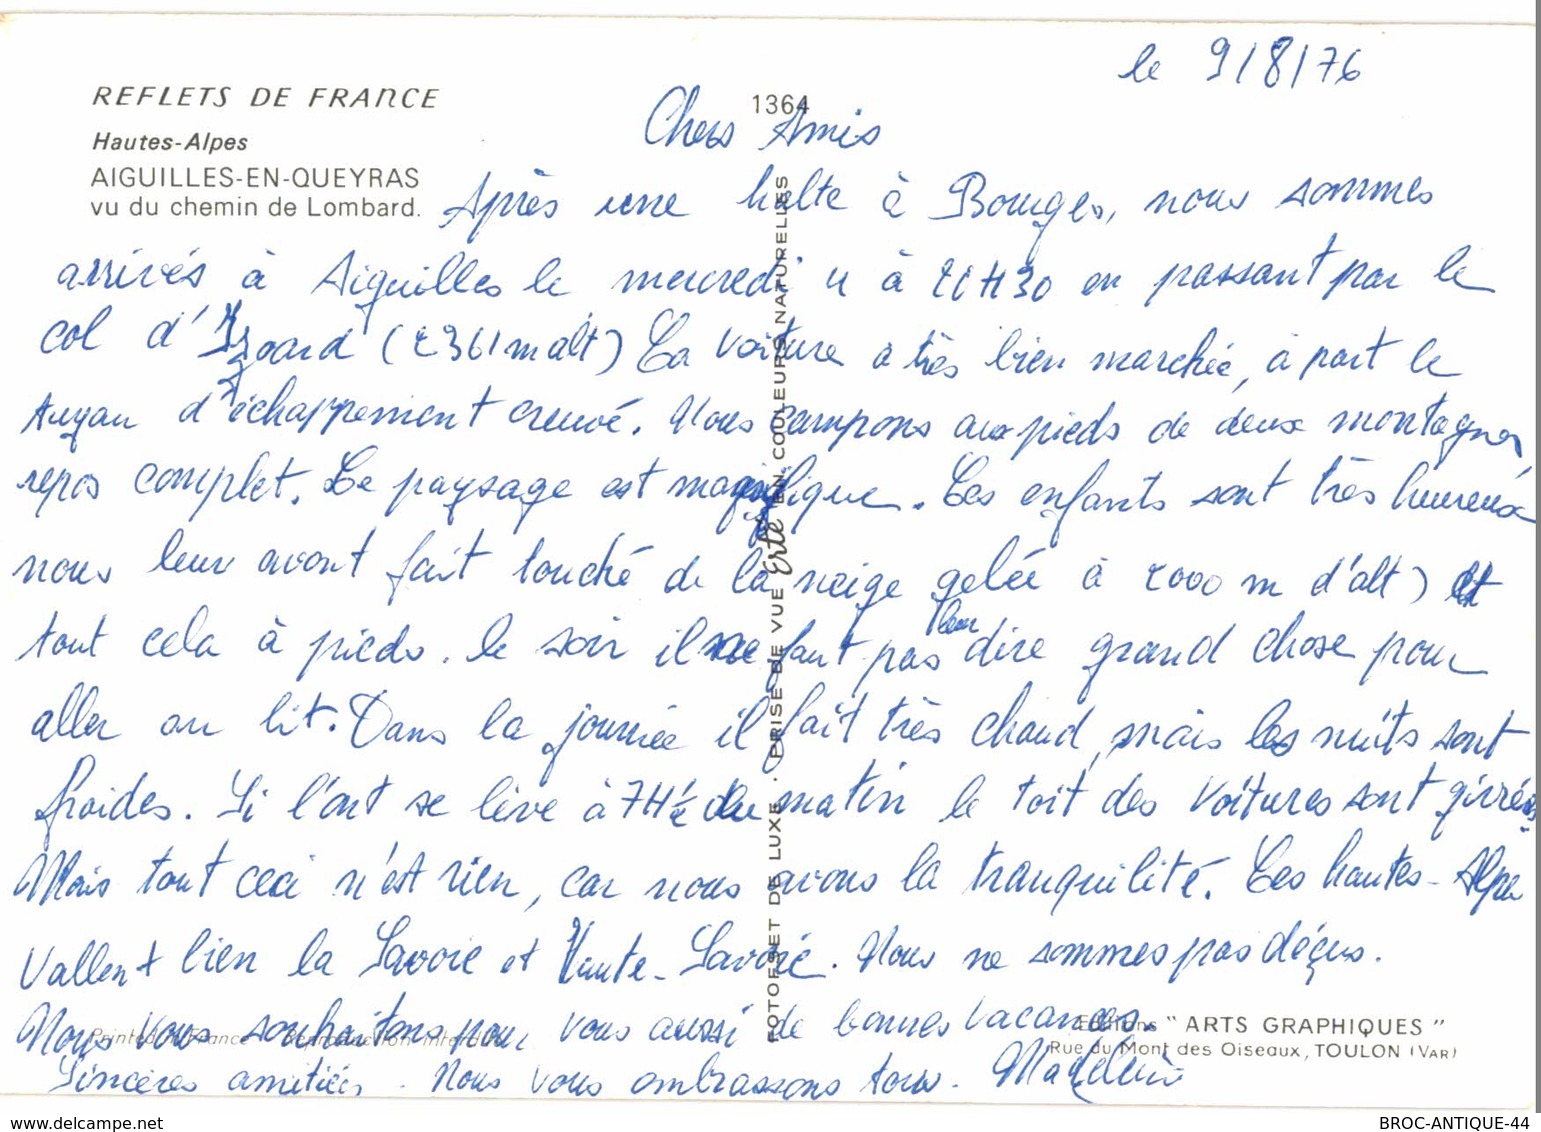 le 9/8/76
REFLETS DE FRANCE
1364
Chers Amis
Hautes-Alpes
AIGUILLES-EN-QUEYRAS
vu du chemin de Lombard.
Après une halte à Bourges, nous sommes
arrivés à Aiguilles le mercredi 4 à 20H30 en passant par le
col d'Izoard (2361 m alt) La voiture a très bien marchée, à part le
tuyau d'échappement crevé. Nous campons aux pieds de deux montagnes
repos complet. Le paysage est magnifique. Les enfants sont très heureux
nous leur avont fait touché de la neige gelée à 2000 m d'alt) et
tout cela à pieds. le soir il ne faut pas leur dire grand chose pour
aller au lit. Dans la journée il fait très chaud, mais les nuits sont
froides. Si l'ont se lève à 7H½ du matin le toit des voitures sont givrées.
Mais tout ceci n'est rien, car nous avons la tranquilité. Les hautes-Alpes
vallent bien la Savoie et Haute-Savoie. Nous ne sommes pas déçus.
Nous vous souhaitons pour vous aussi de bonnes vacances.
Sincères amitiées. Nous vous embrassons tous. Madeleine
FOTOFSET DE LUXE · PRISE DE VUE Erlé EN COULEURS NATURELLES
Printed in France - Reproduction interdite
Editions "ARTS GRAPHIQUES"
Rue du Mont des Oiseaux, TOULON (VAR)
delcampe.net
BROC-ANTIQUE-44